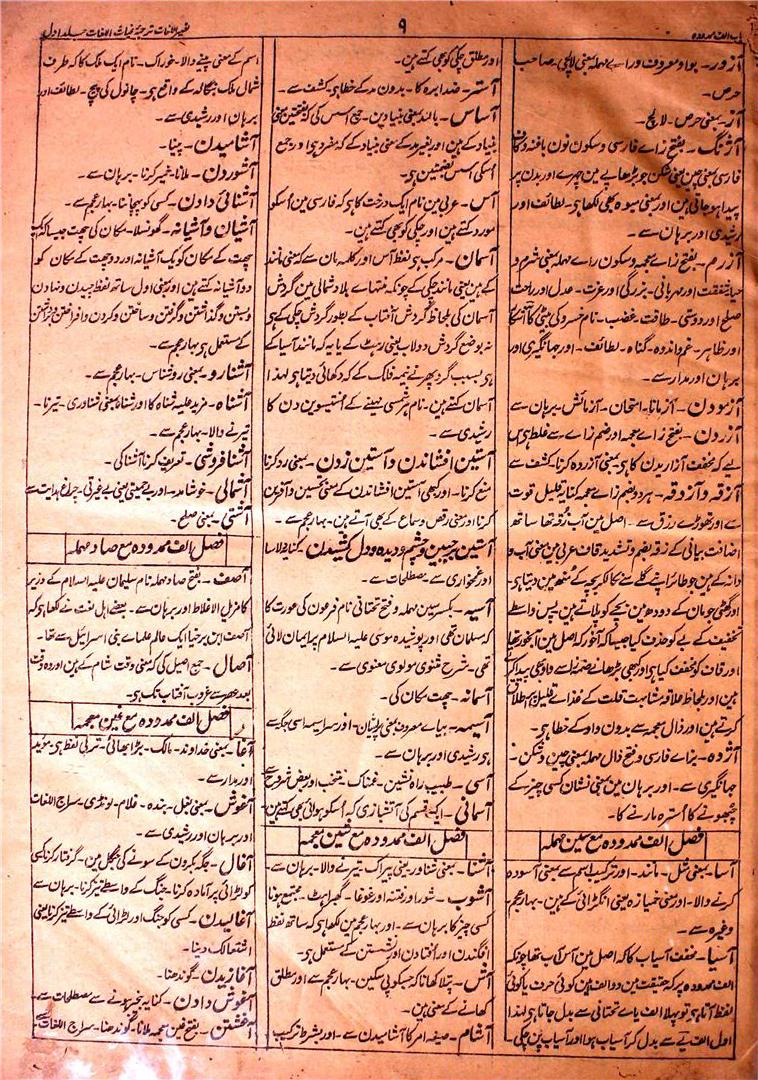 باب الف ممدوده
۹
نصیر اللغات ترجمۂ غیاث اللغات جلد اول
آزور۔ بواو معروف وراے مہملہ بمعنی لالچی۔ صاحب
حرص۔
آز۔ بمعنی حرص۔ لالچ۔
آژنگ۔ بفتح زاے فارسی و سکون نون بافتہ و کاف
فارسی بمعنی چین یعنی شکن جو بڑھاپے مین چہرے اور بدن پر
پیدا ہو جاتی ہین اور بمعنی میوہ بھی لکھا ہی۔ لطائف اور
رشیدی اور برہان سے۔
آزرم۔ بفتح زاے معجمہ و سکون راے مہملہ بمعنی شرم و
حیا شفقت اور مہربانی۔ بزرگی اور عزت۔ عدل اور راحت
صلح اور دوستی۔ طاقت غضب۔ نام خسرو کی بیٹی کا آشکارا
اور ظاہر۔ غم اندوہ۔ گناہ۔ لطائف۔ اور جہانگیری اور
برہان اور مدار سے۔
آزمودن۔ آزمانا۔ امتحان۔ آزمائش۔ برہان سے
آزردن۔ بفتح زاے معجمہ اور ضم زاے سے غلط ہی اس
لیے کہ مخفف آزاریدن کا ہی بمعنی آزردہ کرنا۔ کشف سے
آزقہ و آزوقہ۔ ہر دو بضم زاے معجمہ کنایہ قلیل قوت
سے اور تھوڑے رزق سے۔ اصل مین آب زقہ تھا ساتھ
اضافت بیانی کے زقہ بضم و تشدید قاف عربی مین بمعنی آب و
دانہ کے ہین جو طائر اپنے گلے سے نکالکر بچہ کے منھ مین دیتا ہی۔
اور گھٹی جو مان کے دودھ مین بچے کو پلاتے ہین پس واسطے
تخفیف کے بے کو حذف کیا جیسا کہ آبخور کہ اصل مین آبخور تھا
اور قاف کو مخفف کیا ہی اور کبھی بڑھانے ضمہ زا سے واو بھی پیدا کرتے
ہین اور بلحاظ علاقہ مشابہت قلت کے غذاے قلیل پر اطلاق
کرتے ہین اور ذال معجمہ سے بدون واو کے خطا ہی۔
آژدہ۔ بزاے فارسی و فتح دال مہملہ بمعنی چین و شکن۔
جہانگیری سے۔ اور برہان مین بمعنی نشان کسی چیز کے
چھونے کا اُسترہ مارنے کا۔
فصل الف ممدودہ مع سین مہملہ
آسا۔ بمعنی مثل۔ مانند۔ اور ترکیب اسم سے بمعنی آسودہ
کرنے والا۔ اور بمعنی خمیازہ یعنی انگڑائی کے ہین۔ بہار عجم۔
وغیرہ سے۔
آسیا۔ مخفف آسیاب کا کہ اصل مین آس آب تھا چونکہ
الف ممدودہ پر کہ حقیقت مین دو الف ہین کوئی حرف یا کوئی
لفظ آتا ہی تو پہلا الف یاے تحتانی سے بدل جاتا ہی لہذا
اول الف یے سے بدل کر آسیاب ہوا اور آسیاب پن چکی
اور مطلق چکی کو بھی کہتے ہین۔
آستر۔ ضد ابرہ کا۔ بدون مد کے خطا ہی کشف سے۔
آساس۔ بالمد بمعنی بنیادین۔ جمع اسس کی کہ بفتحتین بمعنی
بنیاد کے ہین اور بغیر مد کے بمعنی بنیاد کے کہ مفرد ہی۔ و جمع
اُسکی اُسس بضمتین ہی۔
آس۔ عربی مین نام ایک درخت کا ہی کہ فارسی مین اُسکو
مورد کہتے ہین اور چکی کو بھی کہتے ہین۔
آسمان۔ مرکب ہی لفظ آس اور کلمہ مان سے کہ بمعنی مانند
کے ہین یعنی مانند چکی کے چونکہ منتہاے بلاد شمالی مین گردش
آسمان کی بلحاظ گردش آفتاب کے بطور گردش چکی کے ہی
نہ بوضع گردش دولاب یعنی رہٹ کے یا یہ کہ مانند آسیا کے
ہی بسبب گردپھرنے خیمہ فلک کے کہ دکھائی دیتا ہی لہذا
آسمان کہتے ہین۔ نام ہر شمسی مہینے کے ستائیسوین دن کا
رشیدی سے۔
آستین افشاندن و آستین زدن۔ بمعنی رد کرنا
منع کرنا۔ اور کبھی آستین افشاندن کے معنی تحسین و آفرین
کرنا اور بمعنی رقص و سماع کے بھی آتے ہین۔ بہار عجم سے۔
آستین بر جبین و چشم و دیدہ و دل کشیدن کنایہ دلاسا
اور غمخواری سے مصطلحات سے۔
آسیہ۔ بکسر سین مہملہ و فتح تحتانی نام فرعون کی عورت کا
کہ مسلمان تھی اور پوشیدہ موسی علیہ السلام پر ایمان لائی
تھی۔ شرح مثنوی مولوی معنوی سے۔
آسمانہ۔ چھت مکان کی۔
آسیمہ۔ بیاے معروف بمعنی پریشان۔ اور سراسیمہ اسی جگہ سے
ہی رشیدی اور برہان سے۔
آسی۔ طبیب۔ راہ نشین۔ غمناک۔ منتخب اور بعض شروح سے
آسمانی۔ ایک قسم کی آتشبازی کہ اُسکو ہوائی بھی کہتے ہین
فصل الف ممدودہ مع شین معجمہ
آشنا۔ بمعنی شناور یعنی پیراک۔ تیرنے والا۔ برہان سے۔
آشوب۔ شور اور فتنہ اور غوغا۔ گھبراہٹ۔ مجتمع ہونا
کسی چیز کا برہان سے۔ اور بہار عجم مین لکھا ہی کہ ساتھ لفظ
افگندن اور افتادن اور نشستن کے مستعمل ہی۔
آش۔ پتلا کھانا کہ جسکو پی سکین۔ بہار عجم سے اور مطلق
کھانے کے معنی ہین۔
آشام۔ صیغہ امر کا آشامیدن سے۔ اور بشرط ترکیب
اسم کے معنی پینے والا۔ خوراک۔ نام ایک ملک کا کہ طرف
شمال ملک بنگالہ کے واقع ہی۔ چانول کی پیچ۔ لطائف اور
برہان اور رشیدی سے۔
آشامیدن۔ پینا۔
آشوردن۔ ملانا۔ خمیر کرنا۔ برہان سے۔
آشنائی دادن۔ کسی کو پہچاننا۔ بہار عجم سے۔
آشیان و آشیانہ۔ گھونسلا۔ مکان کی چھت جیسا کہ ایک
چھت کے مکان کو یک آشیانہ اور دو چھت کے مکان کو
دو آشیانہ کہتے ہین اور بمعنی اول ساتھ لفظ چیدن و نہادن
و بستن و گذاشتن و گرفتن و ساختن و کردن و افراختن
کے مستعمل ہی بہار عجم سے۔
آشنارو۔ بمعنی روشناس۔ بہار عجم سے۔
آشناہ۔ مزید علیہ شناہ کا اور شناہ بمعنی شناوری۔ تیرنا۔
تیرنے والا۔ بہار عجم سے۔
آشنا فروشی۔ تعریف کرنا آشنا کی۔
آشمالی۔ خوشامد۔ اور بے حمیتی یعنی بے غیرتی۔ چراغ ہدایت سے
آشتی۔ بمعنی صلح۔
فصل الف ممدودہ مع صاد مہملہ
آصف۔ بفتح صاد مہملہ نام سلیمان علیہ السلام کے وزیر
کا مزیل الاغلاط اور برہان سے۔ بعضے اہل لغت نے لکھا ہی کہ
آصف ابن برخیا ایک عالم علماے بنی اسرائیل سے تھا۔
آصال۔ جمع اصیل کی کہ بمعنی وقت شام کے ہین اور وہ وقت
بعد عصر سے غروب آفتاب تک ہی۔
فصل الف ممدودہ مع غین معجمہ
آغا۔ بمعنی خداوند۔ مالک۔ بڑا بھائی۔ ترکی لفظ ہی موید
اور مدار سے۔
آغوش۔ بمعنی بغل۔ بندہ۔ غلام۔ لونڈی۔ سراج اللغات
اور برہان اور رشیدی سے۔
آغال۔ جگہ بکریون کے سونے کی جنگل مین۔ گرفتار کرنا۔ کسی
کو لڑائی پر آمادہ کرنا۔ جنگ کے واسطے تیز کرنا۔ برہان سے
آغالیدن۔ کسی کو جنگ اور لڑائی کے واسطے تیز کرنا یعنی
اشتعالک دینا۔
آغازیدن۔ گوندھنا۔
آغوش دادن۔ کنایہ بخبر ہونے سے مصطلحات سے۔
آغشتن۔ بفتح غین معجمہ ملانا۔ گوندھنا۔ سراج اللغات سے